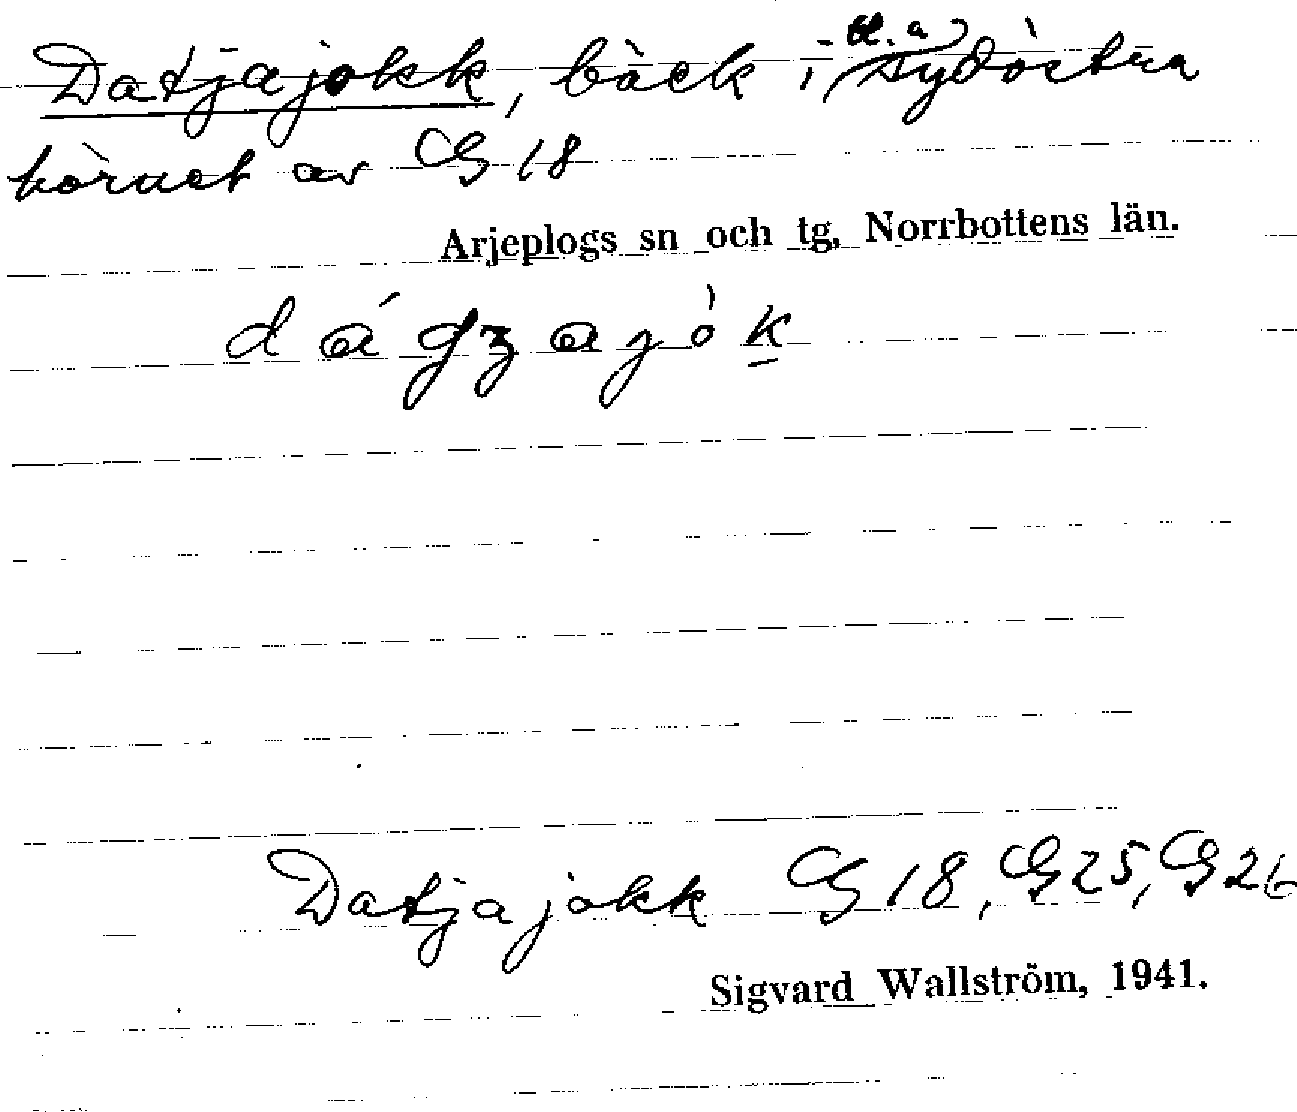 Datjajokk, bäck i bl. a sydöstra
hörnet av G 18
Arjeplogs sn och tg, Norrbottens län.
Datjajokk G 18, G 25, G 26
Sigvard Wallström, 1941.